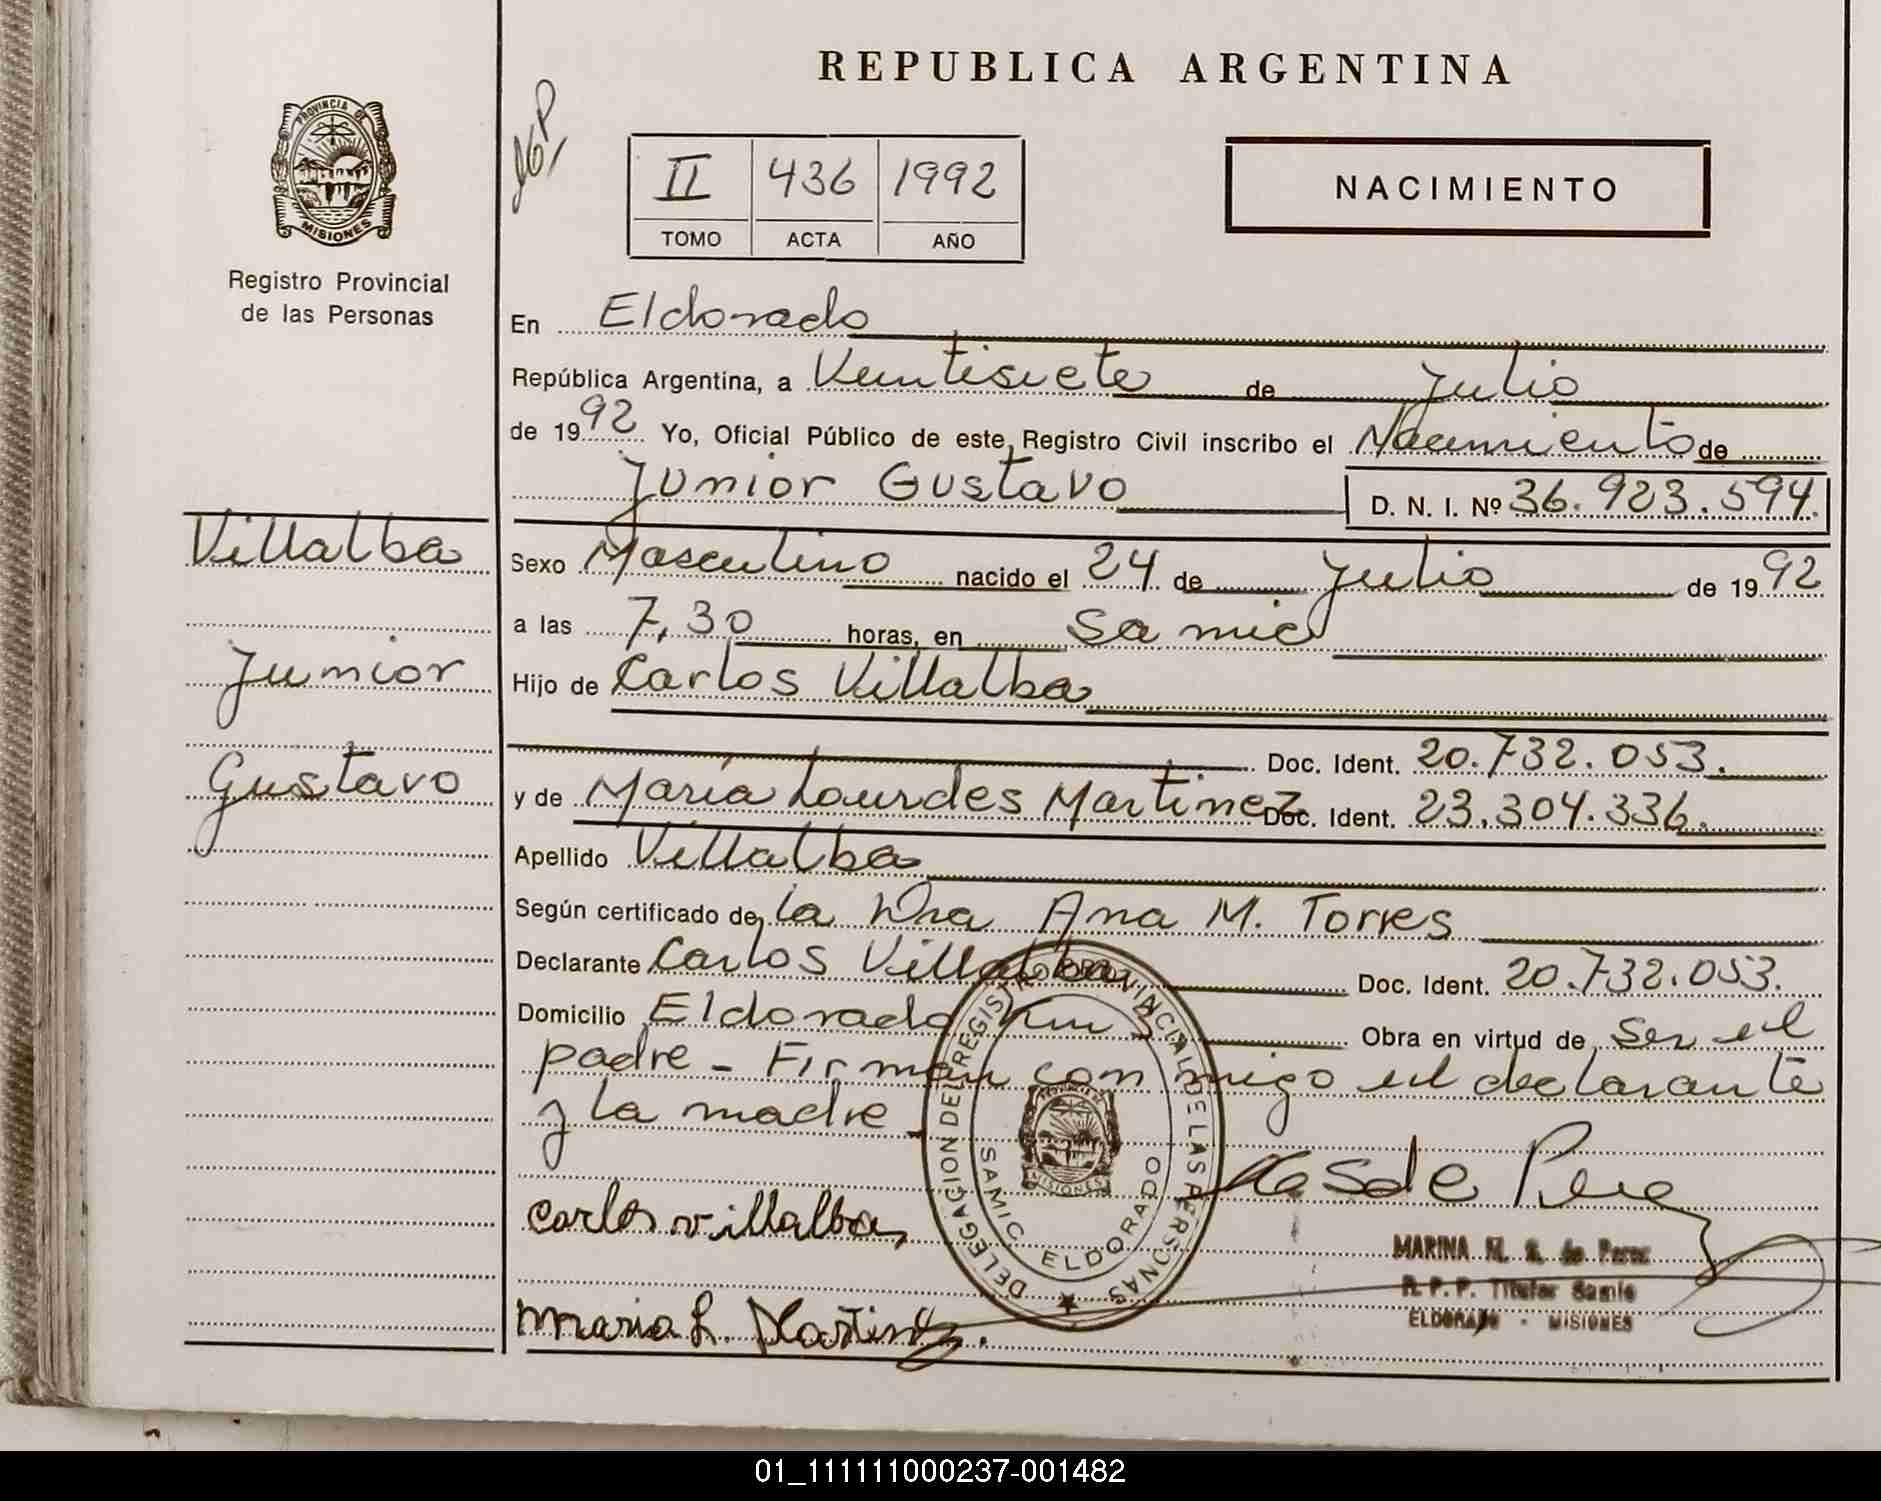 REPUBLICA ARGENTINA
PROVINCIA DE
MISIONES
Registro Provincial
de las Personas
II 436 1992
TOMO ACTA AÑO
NACIMIENTO
En Eldorado
República Argentina, a Veintisiete de Julio
de 1992 Yo, Oficial Público de este Registro Civil inscribo el Nacimiento de
Junior Gustavo D. N. I. Nº 36.923.594.
Villalba
Junior
Gustavo
Sexo Masculino nacido el 24 de Julio de 1992
a las 7,30 horas, en Samic
Hijo de Carlos Villalba
Doc. Ident. 20.732.053.
y de María Lourdes Martinez Doc. Ident. 23.304.336.
Apellido Villalba
Según certificado de la Dra Ana M. Torres
Declarante Carlos Villalba Doc. Ident. 20.732.053.
Domicilio Eldorado Km 3 Obra en virtud de ser el
padre - Firman con migo el declarante
y la madre -
DELEGACION DEL REGISTRO PROVINCIAL DE LAS PERSONAS
SAMIC ELDORADO
MISIONES
Carlos villalba
Maria L. Martinez.
de Perez
MARINA M. S. de Perez
R.P.P. Titular Samic
ELDORADO - MISIONES
01_111111000237-001482